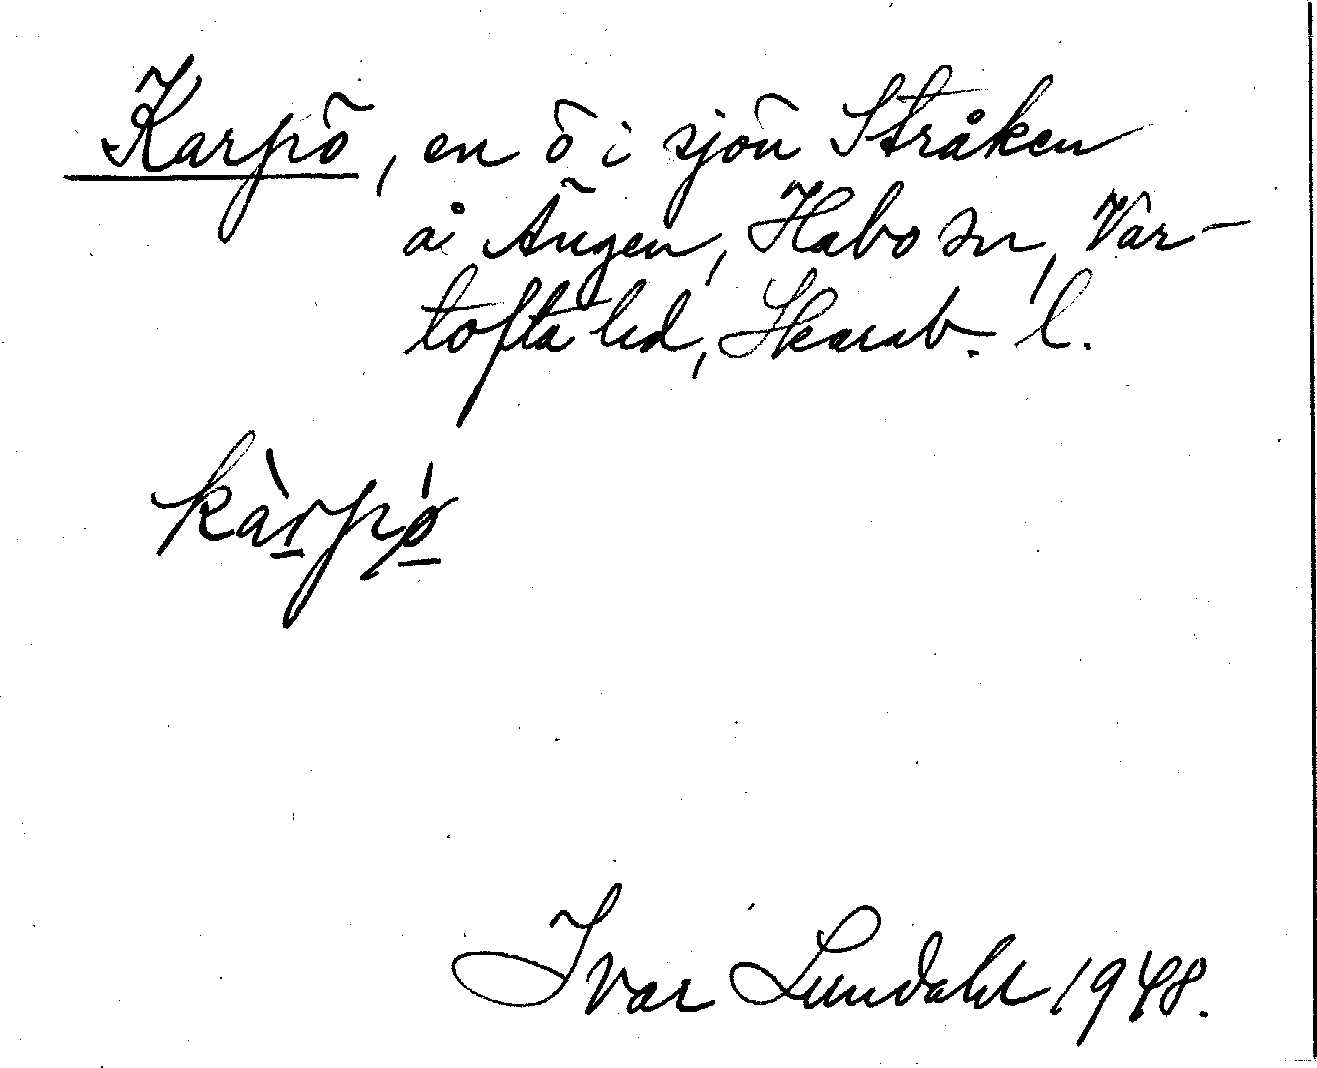 Karpö, en ö i sjön Stråken
å Ängen, Habo sn, Var-
tofta hd, Skarab. l.
kàrpø̀
Ivar Lundahl 1948.